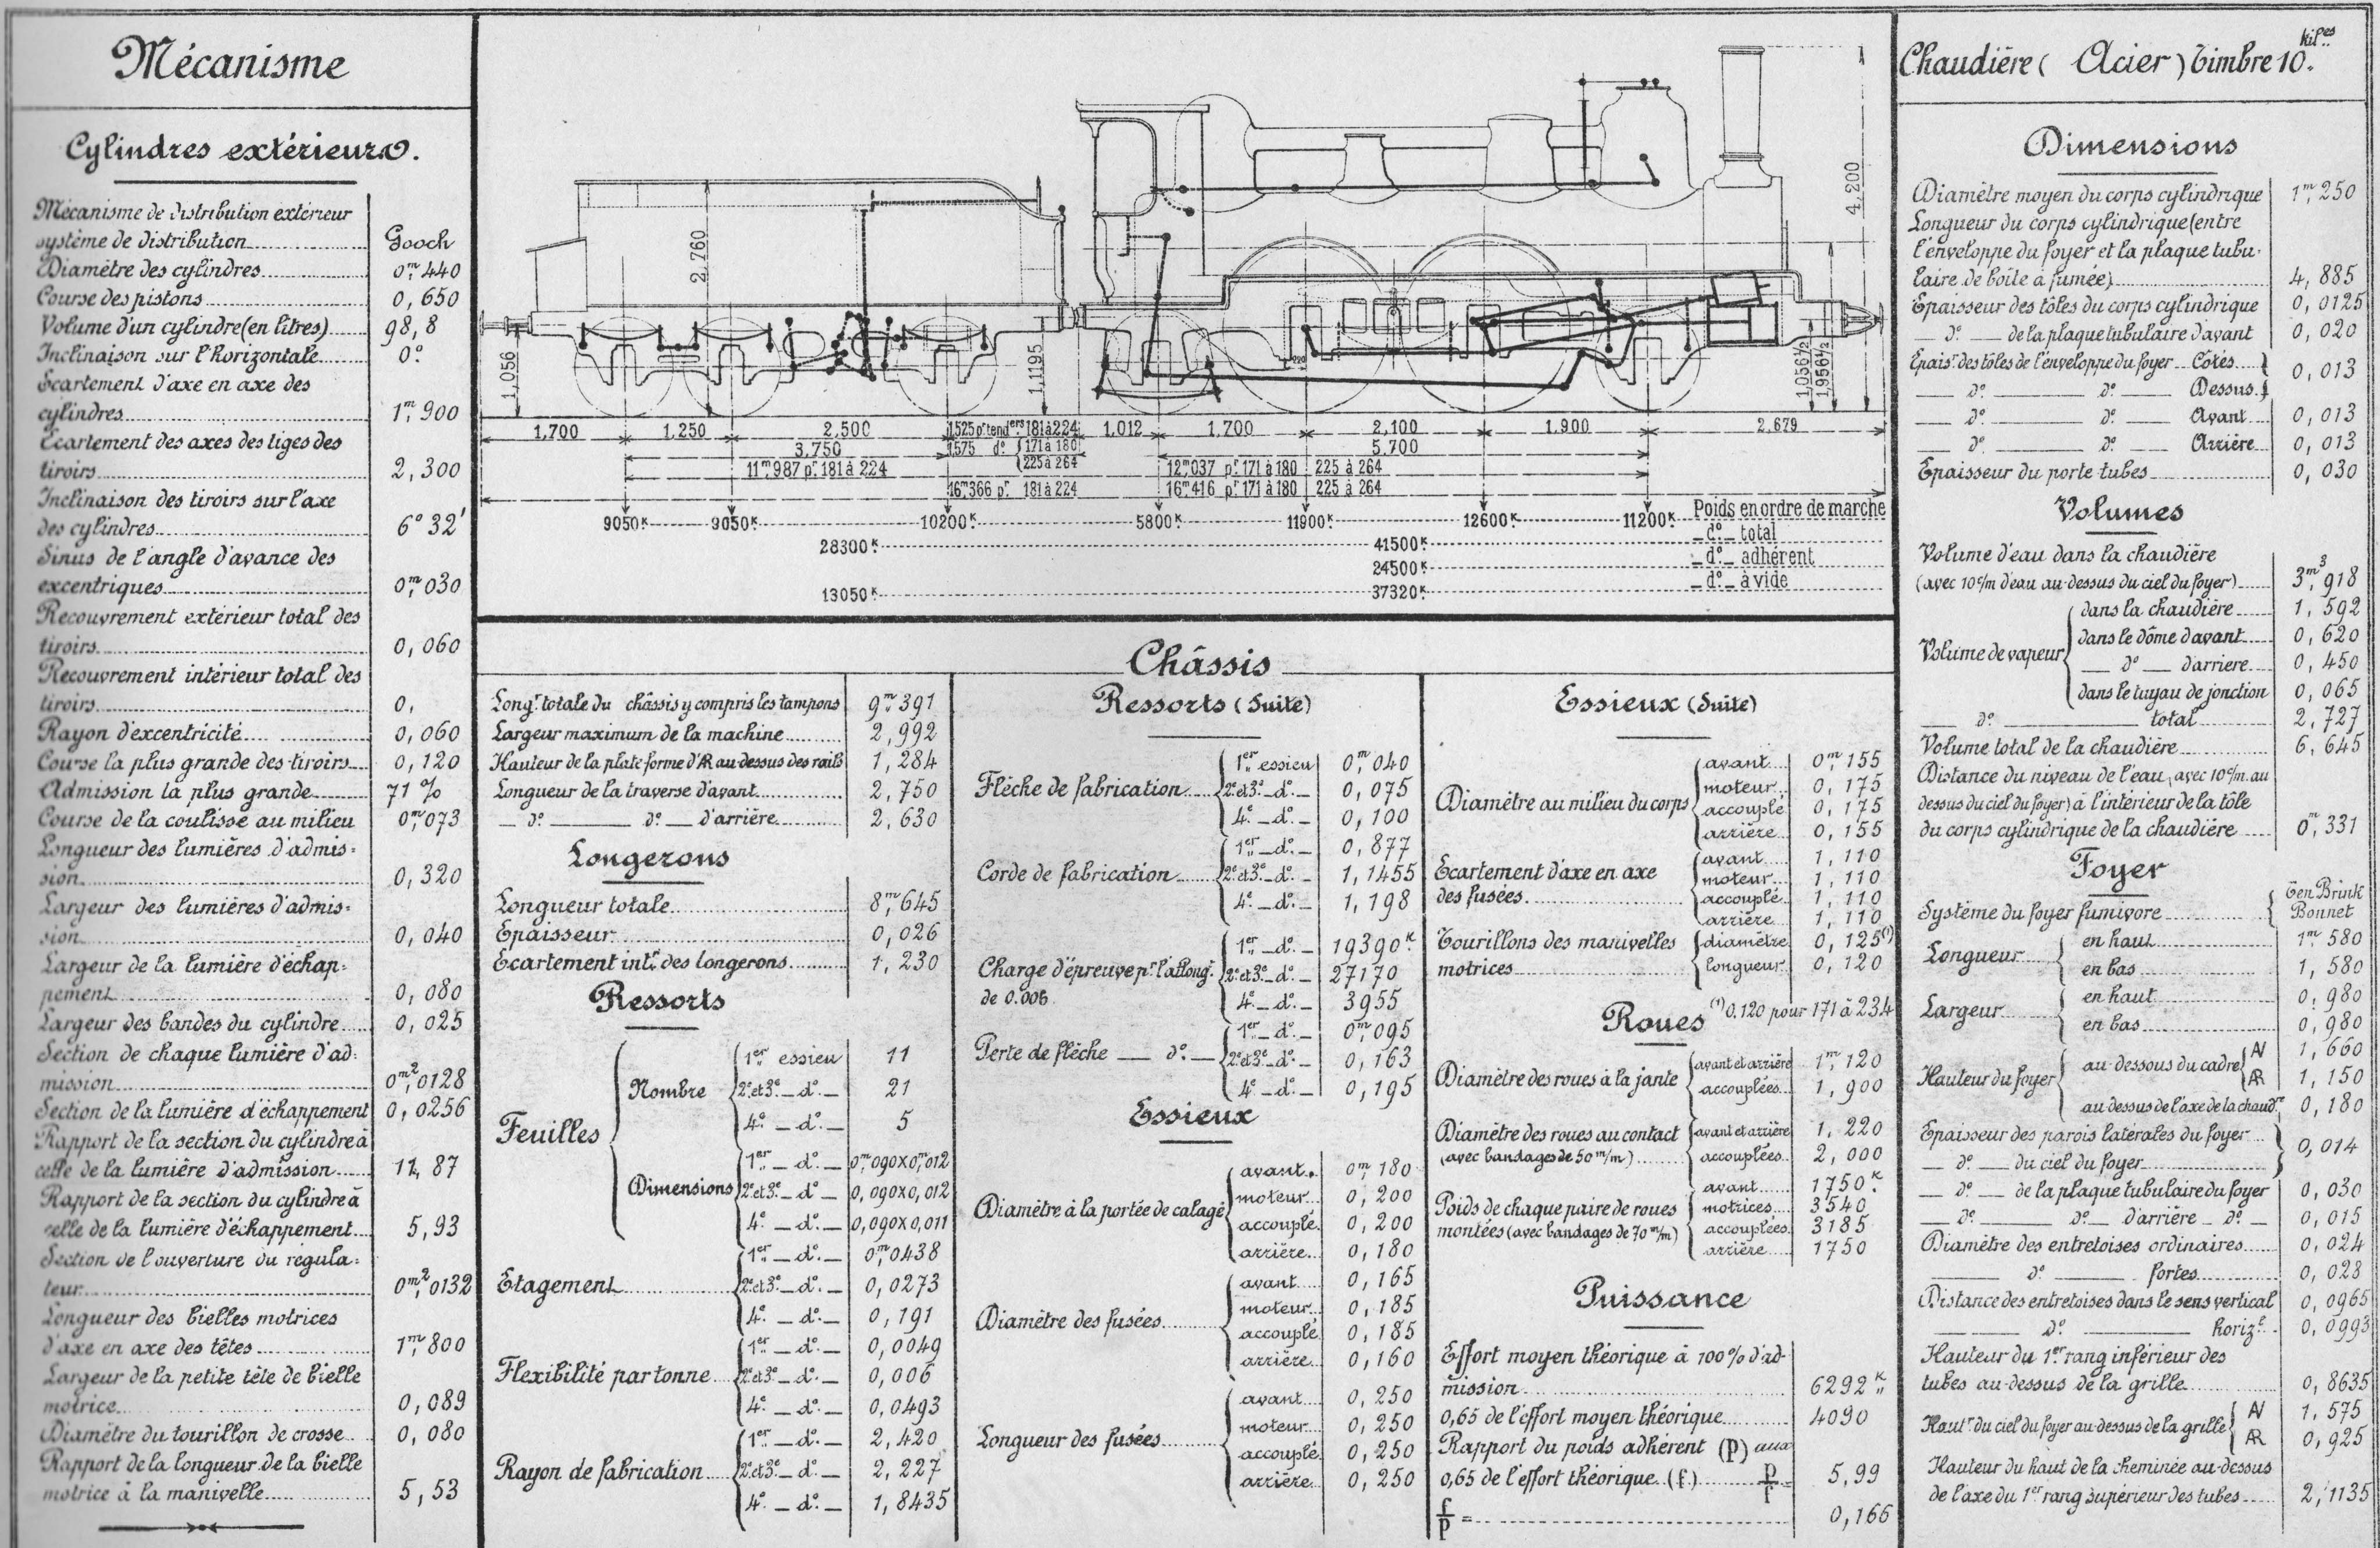 Mécanisme
Cylindres extérieurs.
Mécanisme de distribution extérieur
système de distribution Gooch
Diamètre des cylindres 0m,440
Course des pistons 0,650
Volume d'un cylindre (en litres) 98,8
Inclinaison sur l'horizontale 0°
Ecartement d'axe en axe des
cylindres 1m,900
Ecartement des axes des tiges des
tiroirs 2,300
Inclinaison des tiroirs sur l'axe
des cylindres 6° 32'
Sinus de l'angle d'avance des
excentriques 0m,030
Recouvrement extérieur total des
tiroirs 0,060
Recouvrement intérieur total des
tiroirs 0,
Rayon d'excentricité 0,060
Course la plus grande des tiroirs 0,120
Admission la plus grande 71 %
Course de la coulisse au milieu 0m,073
Longueur des lumières d'admis-
sion 0,320
Largeur des lumières d'admis-
sion 0,040
Largeur de la lumière d'échap-
pement 0,080
Largeur des bandes du cylindre 0,025
Section de chaque lumière d'ad-
mission 0m²,0128
Section de la lumière d'échappement 0,0256
Rapport de la section du cylindre à
celle de la lumière d'admission 11,87
Rapport de la section du cylindre à
celle de la lumière d'échappement 5,93
Section de l'ouverture du régula-
teur 0m²,0132
Longueur des bielles motrices
d'axe en axe des têtes 1m,800
Largeur de la petite tête de bielle
motrice 0,089
Diamètre du tourillon de crosse 0,080
Rapport de la longueur de la bielle
motrice à la manivelle 5,53
2,760
4,200
1,056
1,1195
1,056½
1,956½
220
1,700 1,250 2,500 1525 pr tenders 181 à 224 1,012 1,700 2,100 1,900 2,679
3,750 1575 do { 171 à 180 5,700
225 à 264
11m,987 pr 181 à 224 12m,037 pr 171 à 180 225 à 264
16m,366 pr 181 à 224 16m,416 pr 171 à 180 225 à 264
9050K 9050K 10200K 5800K 11900K 12600K 11200K Poids en ordre de marche
28300K 41500K do total
24500K do adhérent
13050K 37320K do à vide
Châssis
Longr totale du châssis y compris les tampons 9m,391
Largeur maximum de la machine 2,992
Hauteur de la plate forme d'AR au-dessus des rails 1,284
Longueur de la traverse d'avant 2,750
do do d'arrière 2,630
Longerons
Longueur totale 8m,645
Epaisseur 0,026
Ecartement intr des longerons 1,230
Ressorts
Feuilles
Nombre
1er essieu 11
2e et 3e do 21
4e do 5
Dimensions
1er do 0m,090x0m,012
2e et 3e do 0,090x0,012
4e do 0,090x0,011
Etagement
1er do 0m,0438
2e et 3e do 0,0273
4e do 0,191
Flexibilité par tonne
1er do 0,0049
2e et 3e do 0,006
4e do 0,0493
Rayon de fabrication
1er do 2,420
2e et 3e do 2,227
4e do 1,8435
Ressorts (Suite)
Flèche de fabrication
1er essieu 0m,040
2e et 3e do 0,075
4e do 0,100
Corde de fabrication
1er do 0,877
2e et 3e do 1,1455
4e do 1,198
Charge d'épreuve pr l'allongt
de 0.006
1er do 19390K
2e et 3e do 27170
4e do 3955
Perte de flèche do
1er do 0m,095
2e et 3e do 0,163
4e do 0,195
Essieux
Diamètre à la portée de calage
avant 0m,180
moteur 0,200
accouplé 0,200
arrière 0,180
Diamètre des fusées
avant 0,165
moteur 0,185
accouplé 0,185
arrière 0,160
Longueur des fusées
avant 0,250
moteur 0,250
accouplé 0,250
arrière 0,250
Essieux (Suite)
Diamètre au milieu du corps
avant 0m,155
moteur 0,175
accouplé 0,175
arrière 0,155
Ecartement d'axe en axe
des fusées
avant 1,110
moteur 1,110
accouplé 1,110
arrière 1,110
Tourillons des manivelles
motrices
diamètre 0,125(1)
longueur 0,120
(1) 0,120 pour 171 à 234
Roues
Diamètre des roues à la jante
avant et arrière 1m,120
accouplées 1,900
Diamètre des roues au contact
(avec bandages de 50 m/m)
avant et arrière 1,220
accouplées 2,000
Poids de chaque paire de roues
montées (avec bandages de 70 m/m)
avant 1750K
motrices 3540
accouplées 3185
arrière 1750
Puissance
Effort moyen théorique à 100% d'ad-
mission 6292K
0,65 de l'effort moyen théorique 4090
Rapport du poids adhérent (p) aux
0,65 de l'effort théorique (f) p/f = 5,99
f/p = 0,166
Chaudière ( Acier ) Timbre 10. kiles
Dimensions
Diamètre moyen du corps cylindrique 1m,250
Longueur du corps cylindrique (entre
l'enveloppe du foyer et la plaque tubu-
laire de boîte à fumée) 4,885
Epaisseur des tôles du corps cylindrique 0,0125
do de la plaque tubulaire d'avant 0,020
Epaisr des tôles de l'enveloppe du foyer Côtés } 0,013
do do Dessus }
do do Avant 0,013
do do Arrière 0,013
Epaisseur du porte tubes 0,030
Volumes
Volume d'eau dans la chaudière
(avec 10 c/m d'eau au-dessus du ciel du foyer) 3m³,918
Volume de vapeur
dans la chaudière 1,592
dans le dôme d'avant 0,620
do d'arrière 0,450
dans le tuyau de jonction 0,065
do total 2,727
Volume total de la chaudière 6,645
Distance du niveau de l'eau (avec 10 c/m au
dessus du ciel du foyer) à l'intérieur de la tôle
du corps cylindrique de la chaudière 0m,331
Foyer
Système du foyer fumivore { Ten Brink
Bonnet
Longueur
en haut 1m,580
en bas 1,580
Largeur
en haut 0,980
en bas 0,980
Hauteur du foyer
au-dessous du cadre { AV 1,660
AR 1,150
au dessus de l'axe de la chaudre 0,180
Epaisseur des parois latérales du foyer } 0,014
do du ciel du foyer
do de la plaque tubulaire du foyer 0,030
do do d'arrière do 0,015
Diamètre des entretoises ordinaires 0,024
do fortes 0,028
Distance des entretoises dans le sens vertical 0,0965
do horizt 0,0993
Hauteur du 1er rang inférieur des
tubes au-dessus de la grille 0,8635
Hautr du ciel du foyer au-dessus de la grille { AV 1,575
AR 0,925
Hauteur du haut de la cheminée au-dessus
de l'axe du 1er rang supérieur des tubes 2,1135